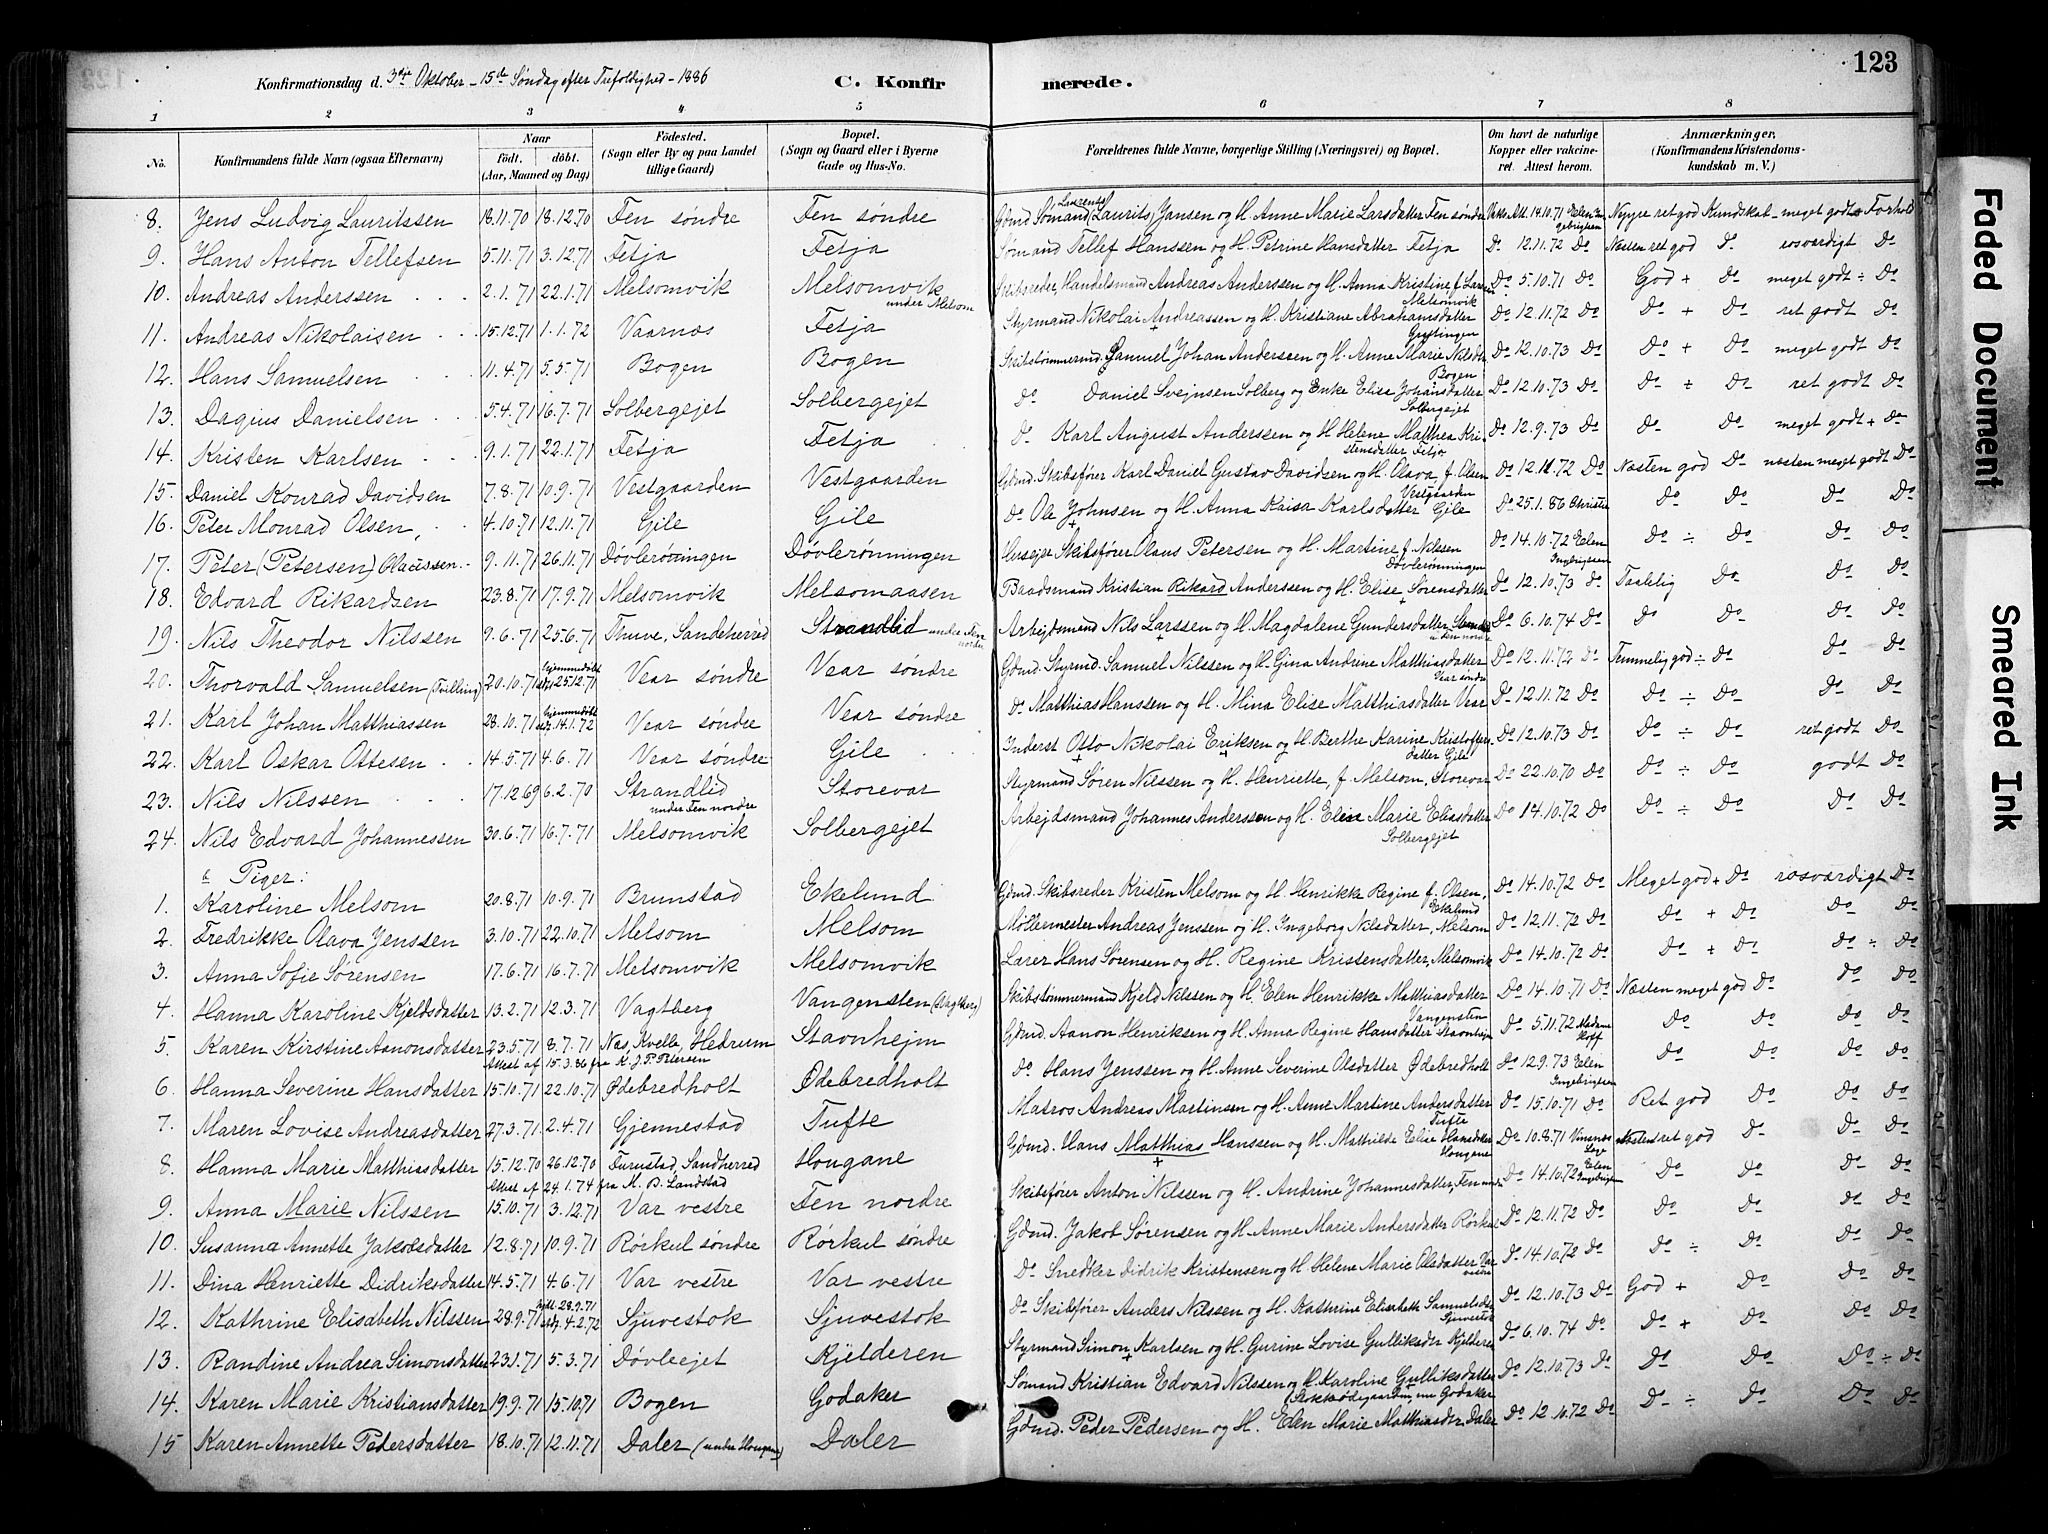 123
Konfirmationsdag d. 3die Oktober - 15de Søndag efter Trefoldighed - 1886
C. Konfirmerede.
1 2 3 4 5 6 7 8
No. Konfirmandens fulde Navn (ogsaa Efternavn) Naar født. døbt. (Aar, Maaned og Dag) Födested. (Sogn eller By og paa Landet tillige Gaard) Bopæl. (Sogn og Gaard eller i Byerne Gade og Hus-No. Forældrenes fulde Navne, borgerlige Stilling (Næringsvei) og Bopæl. Om havt de naturlige Kopper eller vakcineret. Attest herom. Anmærkninger. (Konfirmandens Kristendomskundskab m. V.)
8. Jens Ludvig Lauritssen 18.11.70 18.12.70 Fen søndre Fen søndre Gdmd Sømand (Laurits) Jansen og H. Anne Marie Larsdatter Fen søndre Att. 14.10.71 Elen Ingebrigtsen Neppe ret god Kundskab - meget godt Forhold
9. Hans Anton Tellefsen 5.11.71 3.12.71 Fetja Fetja Sømand Tellef Hanssen og H. Petrine Hansdatter Fetja Do 12.11.72 Do Næsten ret god Do rosværdigt Do
10. Andreas Anderssen 2.1.71 22.1.71 Melsomvik Melsomvik under Melsom Skibsreder, Handelsmand Andreas Anderssen og H. Anna Kristine f. Larsen Melsomvik Do 5.10.71 Do God + Do meget godt ÷ Do
11. Andreas Nikolaisen 15.12.71 1.1.72 Vaarnes Fetja Styrmand Nikolai Andreassen og H. Kristiane Abrahamsdatter Do 12.11.72 Do Do + Do ret godt Do
12. Hans Samuelsen 11.4.71 5.5.71 Bogen Bogen Skibstømmermd. Samuel Johan Anderssen og H. Anne Marie Nilsdtr Bogen Do 12.10.73 Do Do + Do meget godt Do
13. Dagius Danielsen 5.4.71 16.7.71 Solbergejet Solbergejet Do Daniel Svejnsen Solberg og Enke Elise Johansdatter Solbergejet Do 12.10.73 Do Do ÷ Do ret godt Do
14. Kristen Karlsen 9.1.71 22.1.71 Fetja Fetja Do Karl August Anderssen og H Helene Matthea Kristensdatter Fetja Do 12.9.73 Do Do Do meget godt + Do
15. Daniel Konrad Davidsen 7.8.71 10.9.71 Vestgaarden Vestgaarden Gdmd. Skibsfører Karl Daniel Gustav Davidsen og H. Olava f. Olsen Vestgaarden Do 12.11.72 Do Næsten god Do næsten meget godt Do
16. Peter Monrad Olsen, 4.10.71 12.11.71 Gile Gile Do Ole Johnsen og H. Anna Kaisa Karlsdatter Gile Do 25.1.86 Do Do Do Do
17. Peter (Petersen) Olaussen 9.11.71 26.11.71 Døvlerønningen Døvlerønningen Husejer Skibsfører Olaus Petersen og H. Martine f. Nilssen Døvlerønningen Do 14.10.72 Elen Ingebrigtsen Do ÷ Do Do Do
18. Edvard Rikardsen 23.8.71 17.9.71 Melsomvik Melsomaasen Baadsmand Kristian Rikard Anderssen og H. Elise Sørensdatter Do 12.10.73 Do Taalelig Do Do Do
19. Nils Theodor Nilssen 9.6.71 25.6.71 Thuve, Sandeherred Strandlid under Fen nordre Arbejdsmand Nils Larssen og H. Magdalene Gundersdatter, u. Fen nordre Do 6.10.74 Do Do Do Do Do
20. Thorvald Samuelsen (Tvilling) 20.10.71 hjemmedøbt 25.12.71 Vear søndre Vear søndre Gdmd. Styrmd. Samuel Nilssen og H. Gina Andrine Matthiasdatter Vear søndre Do 12.11.72 Do Temmelig god ÷ Do Do Do
21. Karl Johan Matthiassen 28.10.71 hjemmedøbt 14.1.72 Vear søndre Vear søndre Do Matthias Hanssen og H. Mina Elise Matthiasdatter Vear Do 12.11.72 Do Do ÷ Do Do Do
22. Karl Oskar Ottesen 14.5.71 4.6.71 Vear søndre Gile Inderst Otto Nikolai Eriksen og H. Berthe Karine Kristoffersdatter Gile Do 12.10.73 Do Do ÷ Do ret godt Do
23. Nils Nilssen 17.12.69 6.2.70 Strandlid under Fen nordre Storevar Styrmand Søren Nilssen og H. Henriette, f. Melsom, Storevar Do 22.10.70 Do Do ÷ Do godt Do
24. Nils Edvard Johannessen 30.6.71 16.7.71 Melsomvik Solbergejet Arbejdsmand Johannes Anderssen og H. Eline Marie Eliasdatter Solbergejet Do 14.10.72 Do Do ÷ Do Do Do
Piger:
1. Karoline Melsom 20.8.71 10.9.71 Brunstad Ekelund Gdmd. Skibsreder Kristen Melsom og H. Henrikke Regine f. Olsen, Ekelund Do 14.10.72 Do Meget god + Do rosværdigt Do
2. Fredrikke Olava Jenssen 3.10.71 22.10.71 Melsom Melsom Møllermester Andreas Jenssen og H. Ingeborg Nilsdatter, Melsom Do 12.11.72 Do Do + Do Do Do
3. Anna Sofie Sørensen 17.6.71 16.7.71 Melsomvik Melsomvik Lærer Hans Sørensen og H. Regine Kristensdatter, Melsomvik Do 14.10.72 Do Do + Do Do ÷ Do
4. Hanna Karoline Kjeldsdatter 13.2.71 12.3.71 Vagtberg Vangensten (Vagtberg) Skibstømmermand Kjeld Nilssen og H. Elen Henrikke Matthiasdatter Vangensten Do 14.10.71 Do Næsten meget god Do Do Do
5. Karen Kirstine Aanonsdatter 23.5.71 8.7.71 Næs, Kvelle, Hedrum Stavnhejm Gdmd. Aanon Henriksen og H. Anna Regine Hansdatter Stavnhejm Do 5.11.72 Do Do Do Do
Attest af 15.3.86 fra K. J. P. Petersen
6. Hanna Severine Hansdatter 15.10.71 22.10.71 Ødebredholt Ødebredholt Do Hans Jenssen og H. Anne Severine Olsdatter Ødebredholt Do 12.9.73 Elen Ingebrigtsen Do Do Do Do
7. Maren Lovise Andreasdatter 27.3.71 2.4.71 Gjennestad Tufte Matros Andreas Martinsen og H. Anne Martine Andersdatter Tufte Do 15.10.71 Do Ret god Do Do Do
8. Hanna Marie Matthiasdatter 15.12.70 26.12.70 Furustad, Sandherred Hougane Gdmd. Hans Matthias Hanssen og H. Mathilde Elise Hansdatter Hougane Do 10.8.71 Næsten ret god Do Do Do
Attest af 24.1.74 fra M. B. Landstad
9. Anna Marie Nilssen 15.10.71 3.12.71 Var vestre Fen nordre Skibsfører Anton Nilssen og H. Andrine Johannesdatter, Fen nordre Do 14.10.72 Elen Ingebrigtsen Do Do Do Do
10. Susanna Annette Jakobsdatter 12.8.71 10.9.71 Rørkul søndre Rørkul søndre Gdmd. Jakob Sørensen og H. Anne Marie Andersdatter Rørkul Do 12.11.72 Do Do Do Do Do
11. Dina Henriette Didriksdatter 14.5.71 4.6.71 Var vestre Var vestre Do Snedker Didrik Kristensen og H. Helene Marie Olsdatter Var vestre Do 14.10.72 Do Do ÷ Do Do Do
12. Kathrine Elisabeth Nilssen 28.9.71 hjdt. 28.9.71 4.2.72 Sjuvestok Sjuvestok Do Skibsfører Anders Nilssen og H. Kathrine Elisabeth Samuelsdtr Sjuvestok Do 12.10.73 Do God + Do Do Do
13. Randine Andrea Simonsdatter 23.1.71 5.3.71 Døvleejet Kjelderen Styrmand Simon Karlsen og H. Gurine Lovise Gulliksdr Kjelderen Do 6.10.74 Do Do + Do Do Do
14. Karen Marie Kristiansdatter 19.9.71 15.10.71 Bogen Godaker Sømand Kristian Edvard Nilssen og H. Karoline Gulliksdatter Godaker Do 12.10.73 Do Do Do Do ÷ Do
15 Karen Annette Pedersdatter 18.10.71 12.11.71 Daler (under Hougane) Daler Gdmd. Peder Pedersen og H. Elen Marie Matthiasdr Daler Do 12.10.72 Do Do ÷ Do Do Do
Faded Document
Smeared Ink